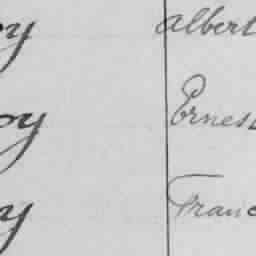 oy albert
oy Ernes
y Franc